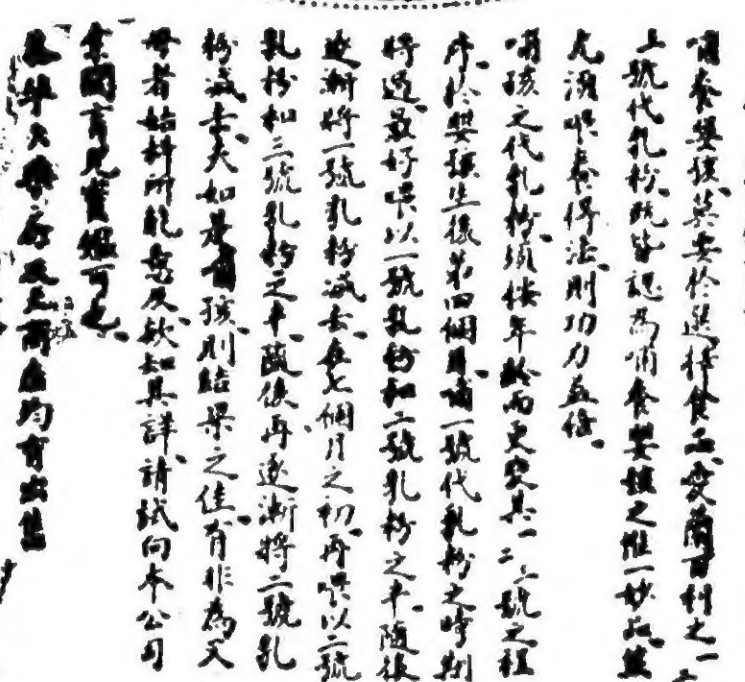 哺養嬰孩莫要於選擇食品愛蘭百利之一二
三號代乳粉既皆認爲哺養嬰孩之惟一妙品並
尤須哺養得法則功力益倍
哺孩之代乳粉須按年齡而更變其一二三號之程
序於嬰孩生後第四個月哺一號代乳粉之時期
將過最好喂以一號乳粉和二號乳粉之半隨後
逐漸將一號乳粉減去在七個月之初再喂以二號
乳粉和三號乳粉之半隨後再逐漸將二號乳
粉減去夫如是育孩則結果之佳有非爲父
母者始料所能及欲知其詳請試向本公司
索閱育兒寶鑑可也
各埠大藥房及大商店均有出售